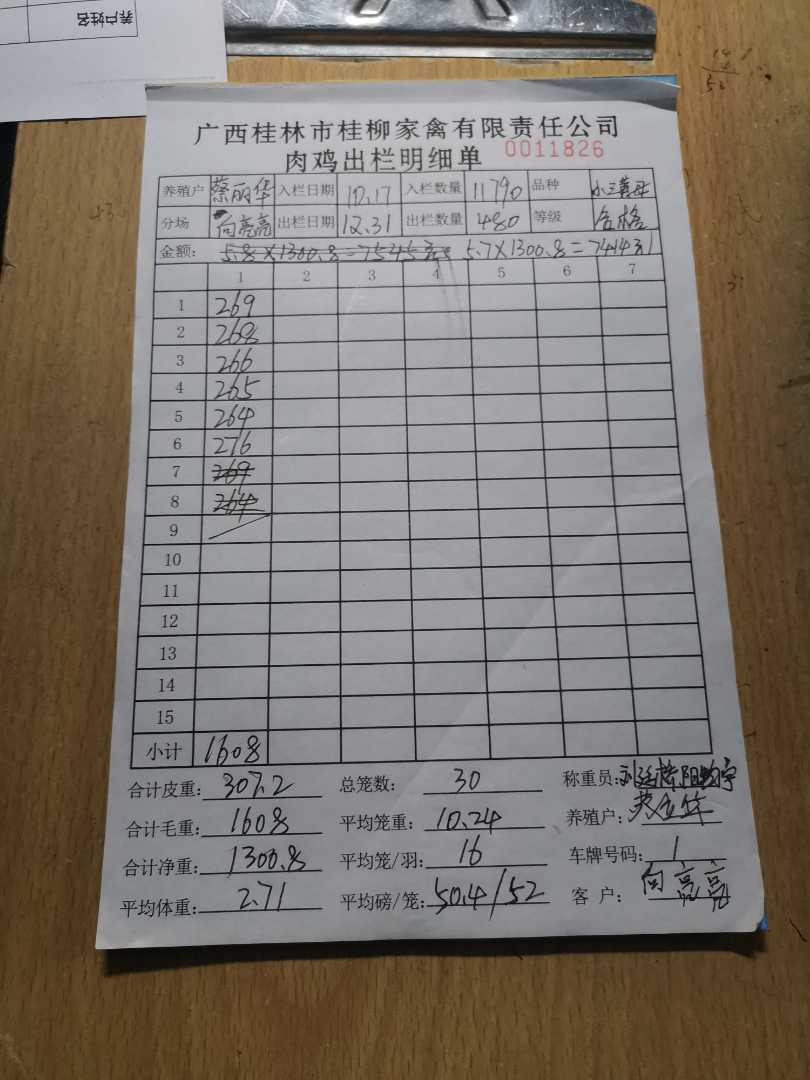 养户姓名
广西桂林市桂柳家禽有限责任公司
肉鸡出栏明细单 0011826
养殖户 蔡丽华 入栏日期 10.17 入栏数量 11790 品种
分场 向亮亮 出栏日期 12.31 出栏数量 480 等级 合格
金额: 5.8×1300.8=7545元 5.7×1300.8=7414元
1 2 3 4 5 6 7
1 269
2 268
3 266
4 265
5 264
6 276
7 269
8 264
9
10
11
12
13
14
15
小计 1608
合计皮重: 307.2 总笼数: 30 称重员:
合计毛重: 1608 平均笼重: 10.24 养殖户:
合计净重: 1300.8 平均笼/羽: 16 车牌号码: 1
平均体重: 2.71 平均磅/笼: 50.4/52 客 户: 向亮亮